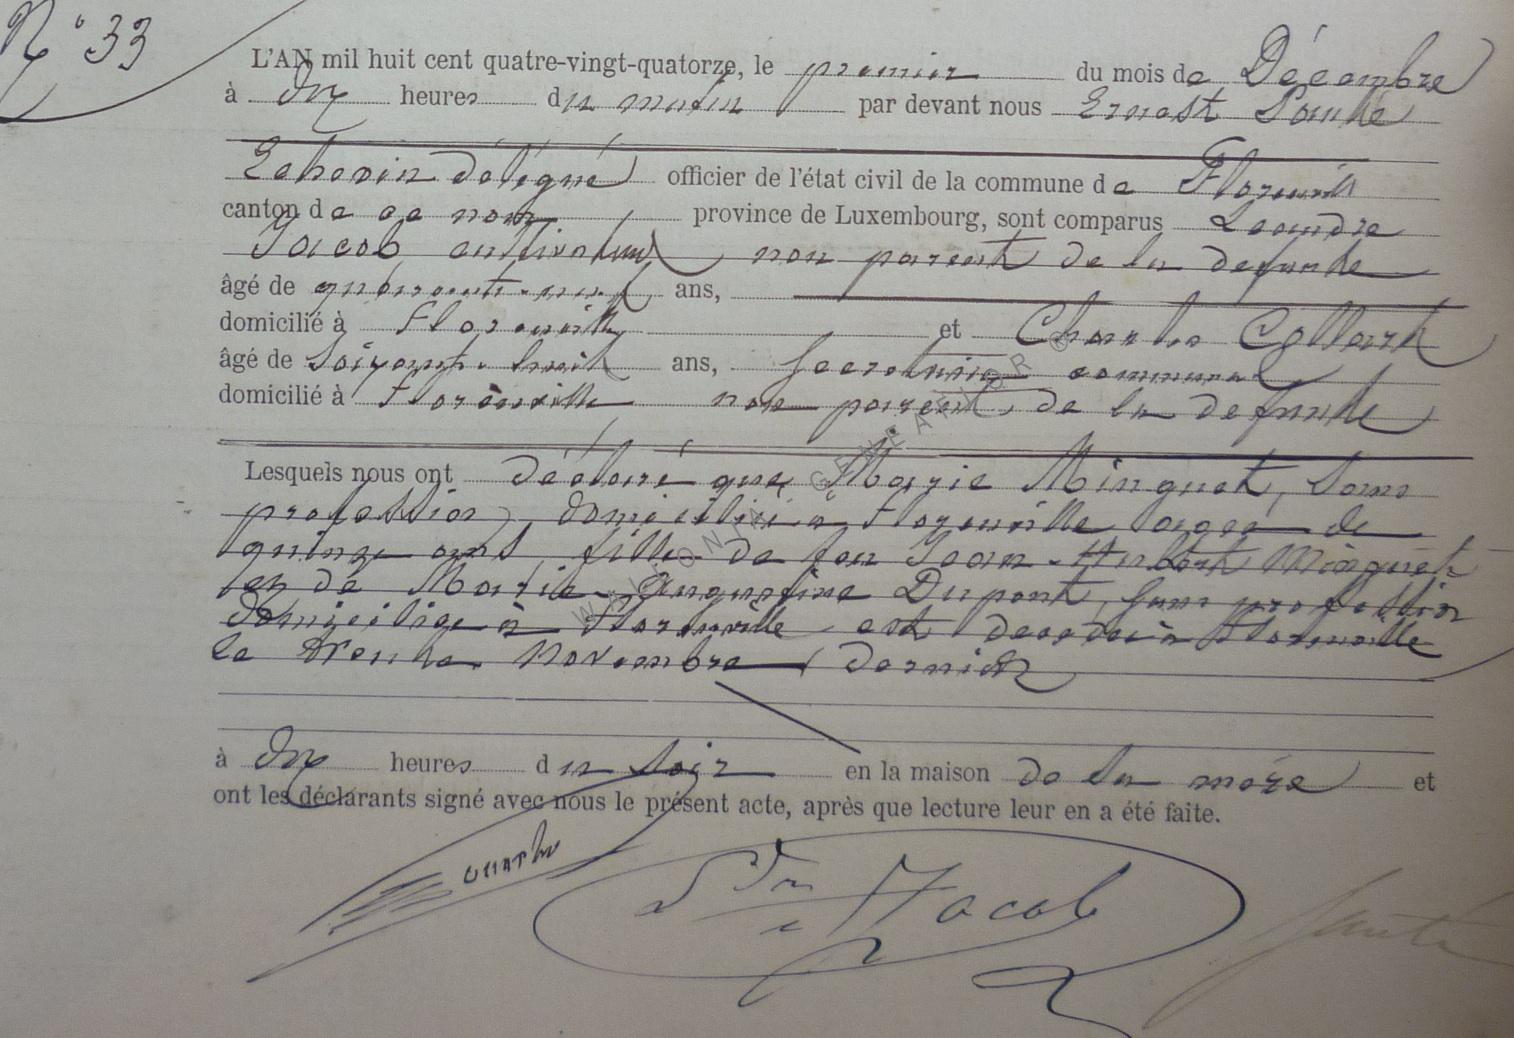 N° 33
L'AN mil huit cent quatre-vingt-quatorze, le premier du mois de Décembre
à dix heures du matin par devant nous Ernest
Echevin délégué officier de l'état civil de la commune de Florenville
canton de ce nom, province de Luxembourg, sont comparus Léandre
Jacob cultivateur, non parent de la defunte
âgé de ans,
domicilié à Florenville et Charles Collard
âgé de soixante-huit ans, secrétaire communal
domicilié à Florenville non parent, de la defunte
Lesquels nous ont déclaré que Marie Minguet, sans
profession, domiciliée à Florenville agée de
quinze ans fille de feu Jean-Hubert Minguet
et de Marie-Augustine Dupont, sans profession
domiciliée à Florenville est décédée à Florenville
le trente Novembre dernier
à dix heures du soir en la maison de la mère et
ont les déclarants signé avec nous le présent acte, après que lecture leur en a été faite.
Jacob
WALLONIA GENEAFLOR ©